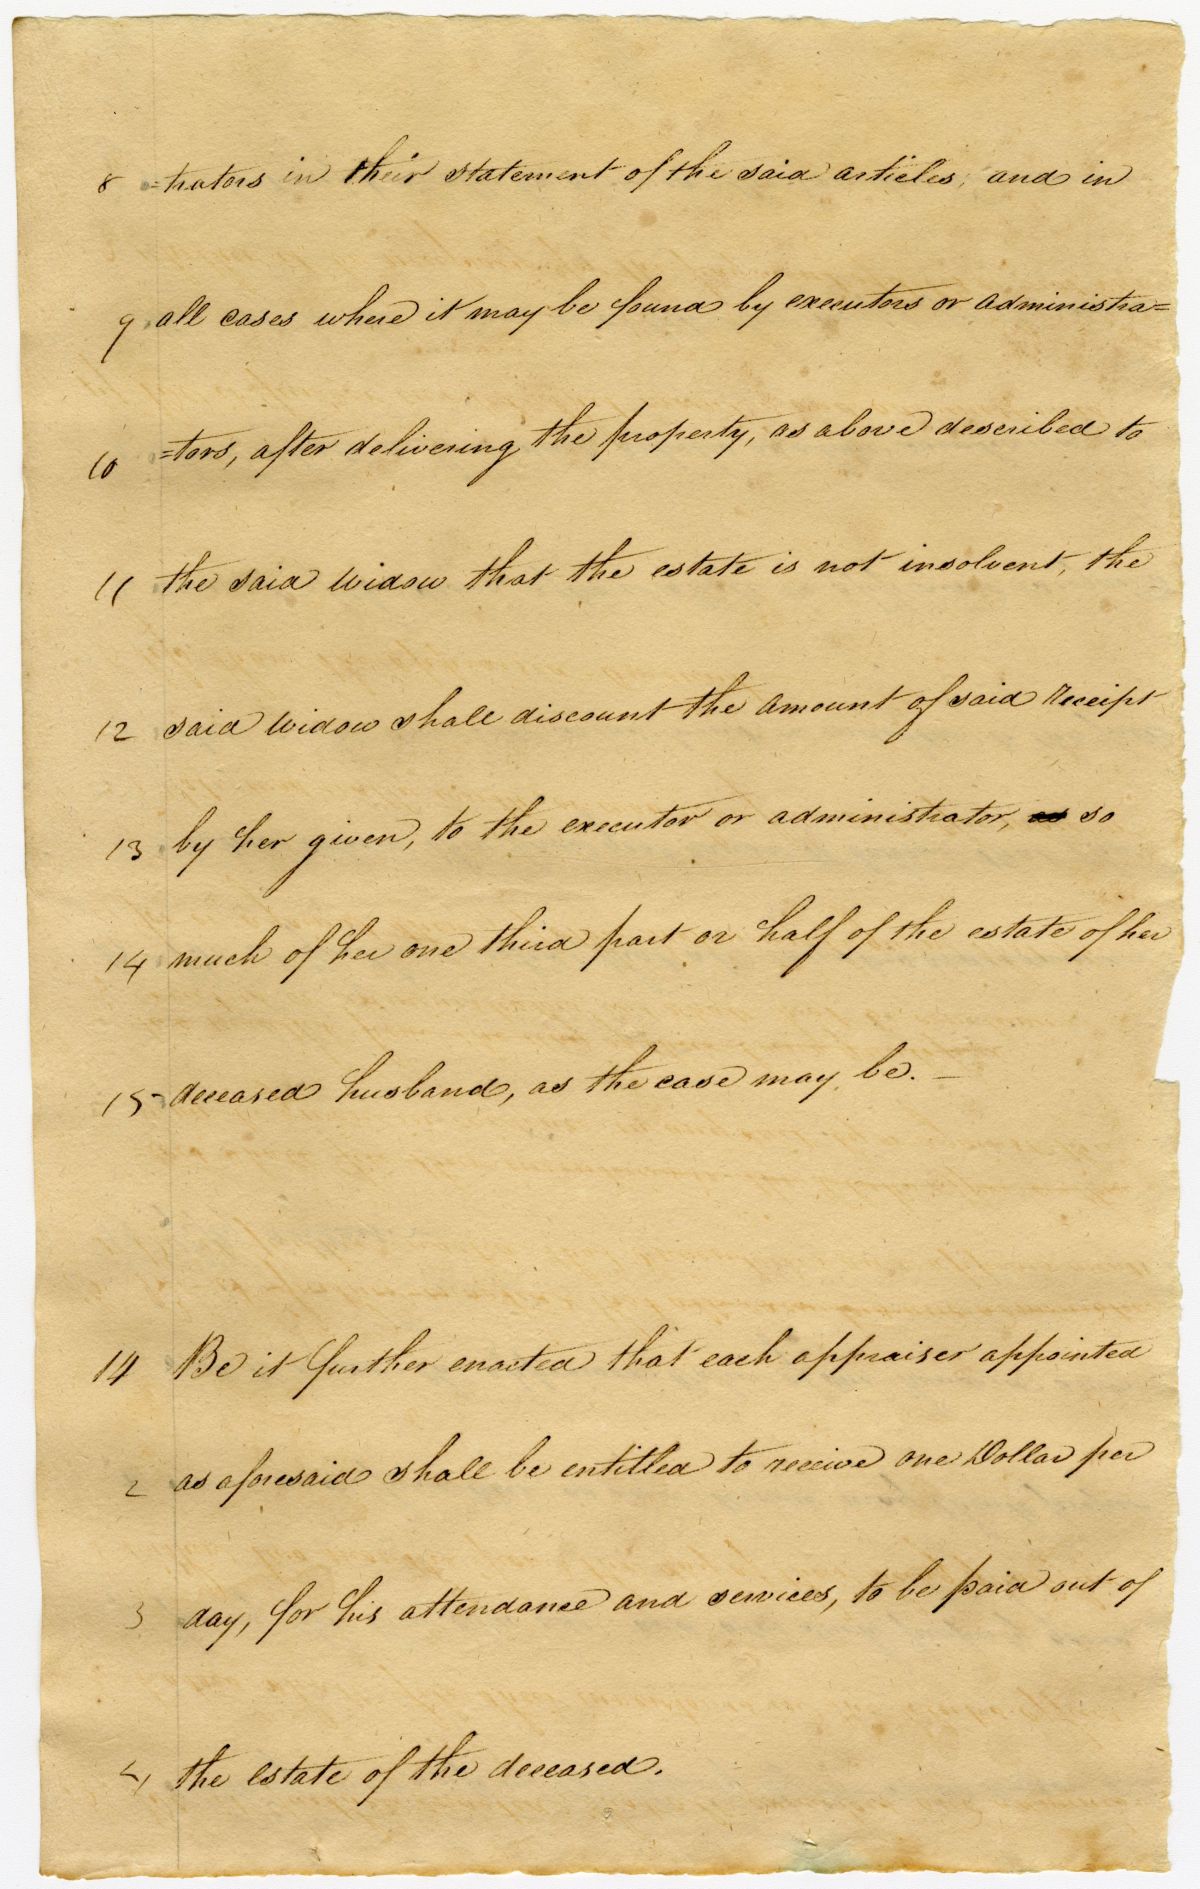 8 =trators in their statement of the said articles, and in
9 all cases where it may be found by executors or administra=
10 =tors, after delivering the property, as above described to
11 the said widow that the estate is not insolvent, the
12 said widow shall discount the amount of said receipt
13 by her given, to the executor or administrator, as so
14 much of her one third part or half of the estate of her
15 deceased husband, as the case may be. —
14 Be it further enacted that each appraiser appointed
2 as aforesaid shall be entitled to receive one Dollar per
3 day, for his attendance and services, to be paid out of
4 the estate of the deceased.